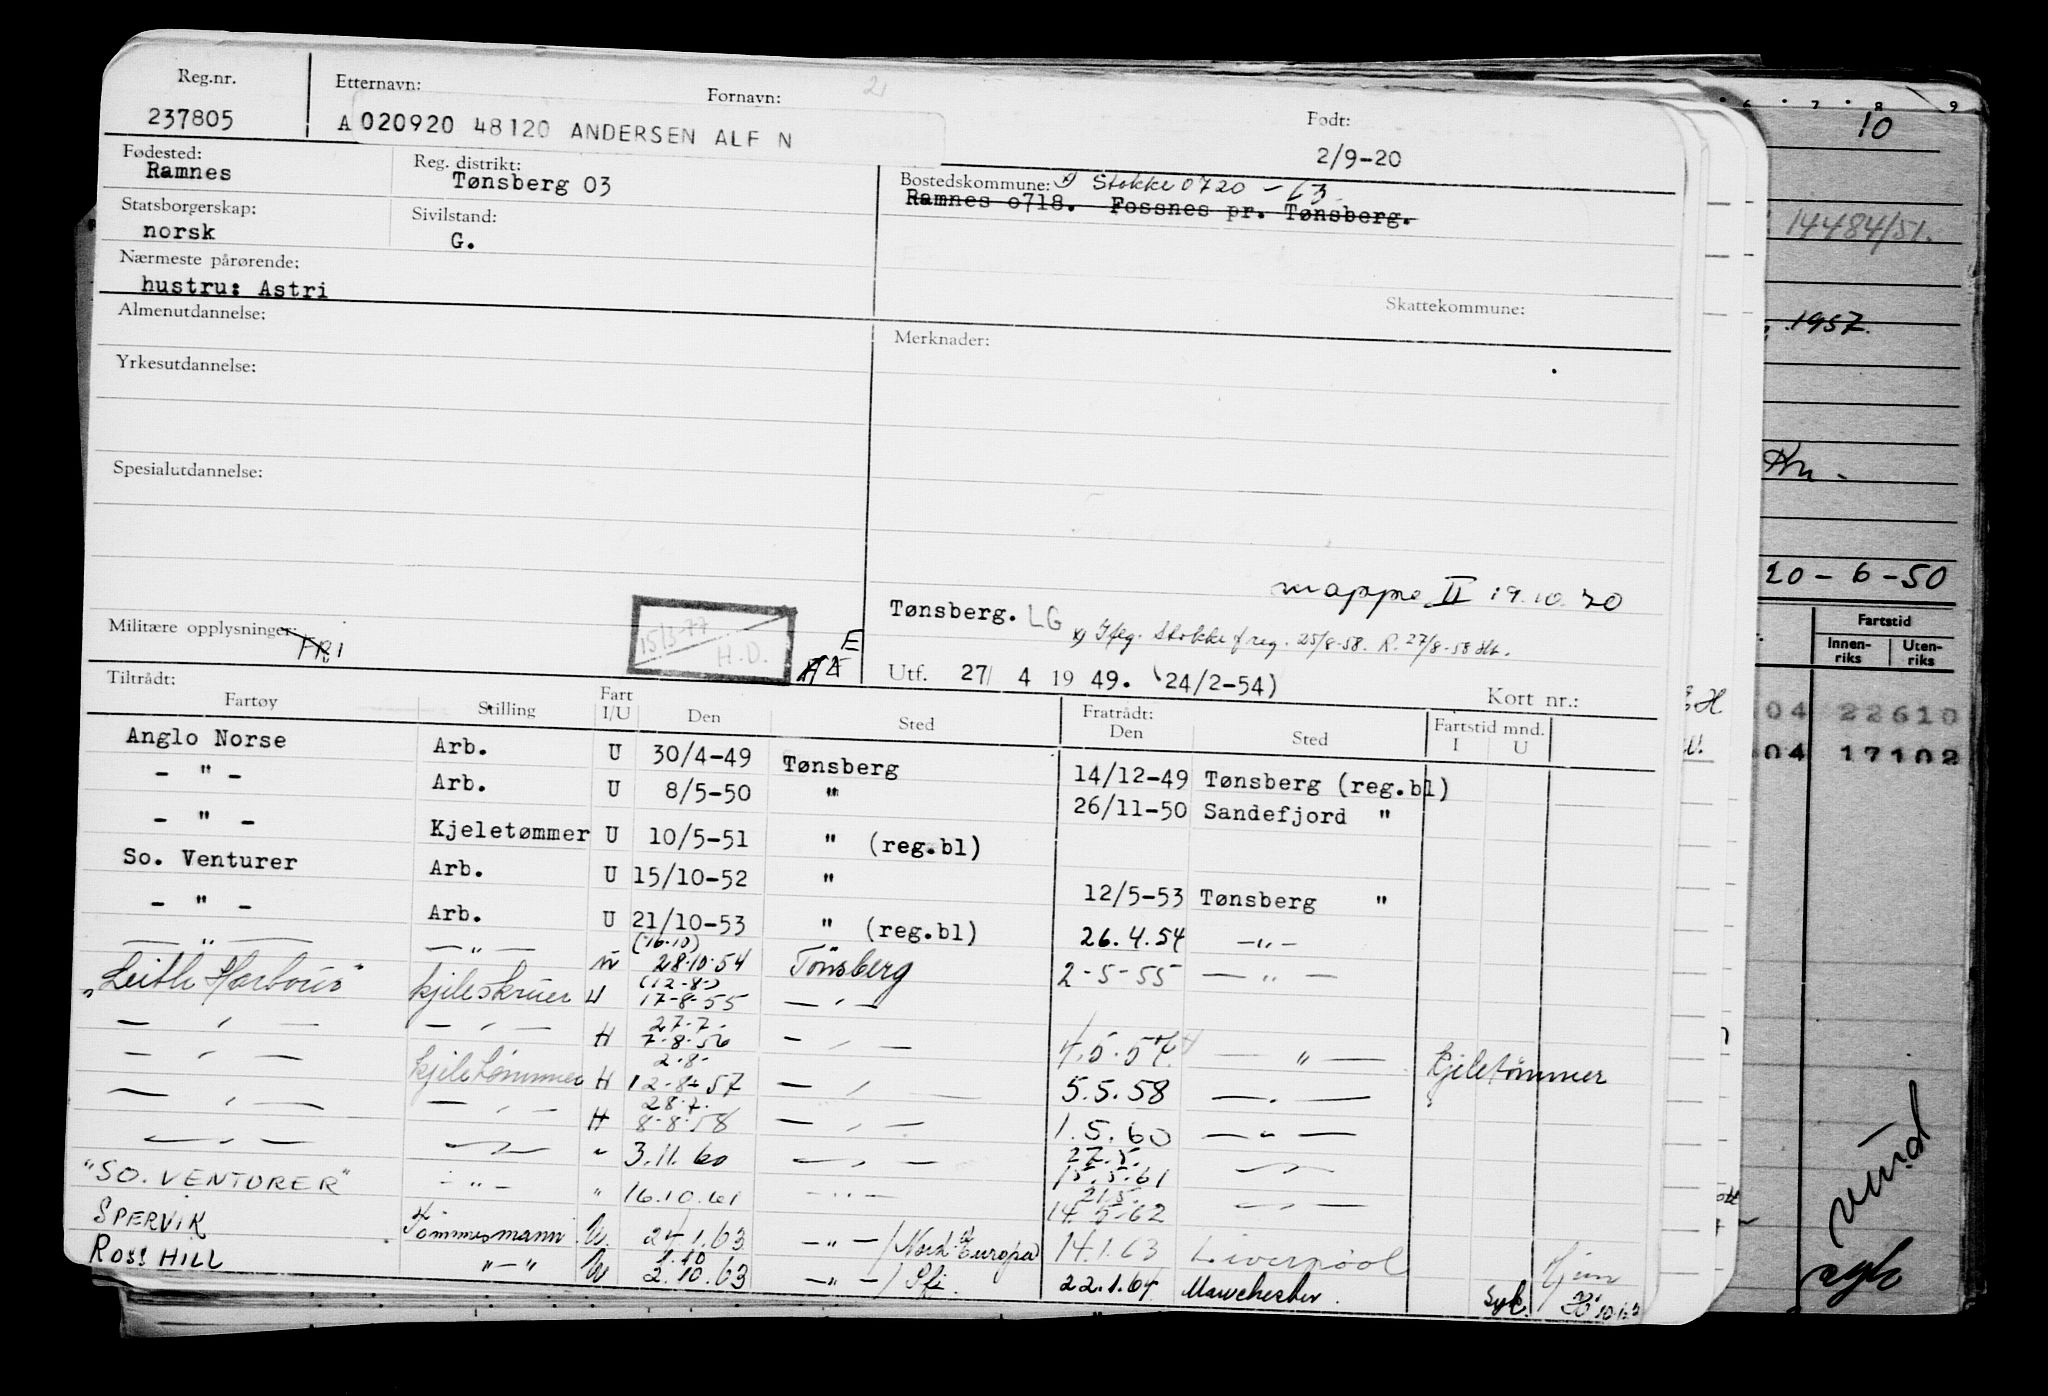 Reg.nr. Etternavn: Fornavn: Født:
237805 A 020920 48120 ANDERSEN ALF N 2/9-20
Fødested: Reg. distrikt: Bostedskommune: x) Stokke 0720 - 63.
Ramnes Tønsberg 03 Ramnes o718. Fossnes pr. Tønsberg.
Statsborgerskap: Sivilstand:
norsk G.
Nærmeste pårørende:
hustru: Astri Skattekommune:
Almenutdannelse: Merknader:
Yrkesutdannelse:
Spesialutdannelse:
mappe II 19.10.70
Tønsberg. LG
Militære opplysninger: FRI 15/3-77 H.D. E x) Iflg. Stokke f reg. 25/8-58. R. 27/8-58
Utf. 27/ 4 1949. (24/2-54)
Tiltrådt: Kort nr.:
Fartøy Stilling Fart I/U Den Sted Fratrådt: Den Sted Fartstid mnd. I U
Anglo Norse Arb. U 30/4-49 Tønsberg 14/12-49 Tønsberg (reg.bl)
- " - Arb. U 8/5-50 " 26/11-50 Sandefjord "
- " - Kjeletømmer U 10/5-51 " (reg.bl)
So. Venturer Arb. U 15/10-52 " 12/5-53 Tønsberg "
- " - Arb. U 21/10-53 " (reg.bl) 26.4.54 - " -
- " - - " - (16.10) 28.10.54 Tönsberg 2-5-55 - " -
"Leith Harbour" kjeleskruer U (12-8-) 17-8-55 - " -
- " - - " - H 27.7. 7-8-56 - " - 4.5.57 - " - kjeletømmer
- " - kjeletømmer H 2-8- 12-8-57 - " - 5.5.58 - " -
- " - - " - H 28.7. 8-8-58 - " - 1.5.60 - " -
- " - - " - " 3.11.60 - " - 27.5. 15.5.61 - " -
"SO. VENTURER" - " - " 16.10.61 - " - 21.5. 14.5.62 - " -
SPERVIK Tømmermann U. 24.1.63 - " - / Nord Europa 14.1.63 Liverpool Hjem
ROSS HILL " - " U 1.10 2.10.63 - " - / 22.1.64 Manchester. Syk.
6 7 8 9
10
14484/51.
1957.
20-6-50
Fartstid
Innen-riks Uten-riks
04 22610
04 17102